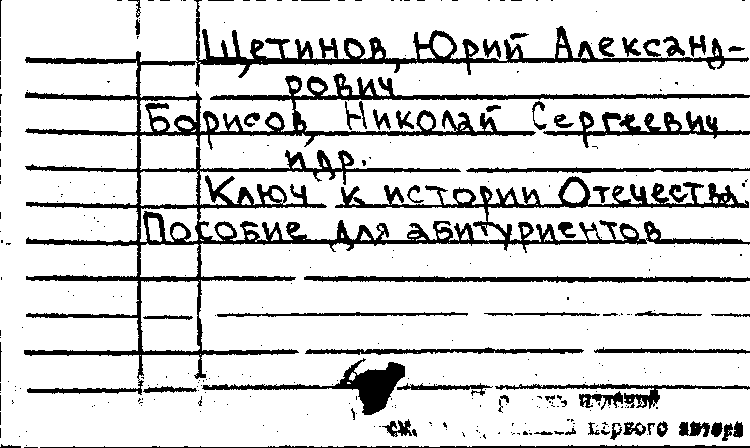 Щетинов, Юрий Александ-
рович
Борисов, Николай Сергеевич
и др.
Ключ к истории Отечества.
Пособие для абитуриентов
изданий
см. первого автора